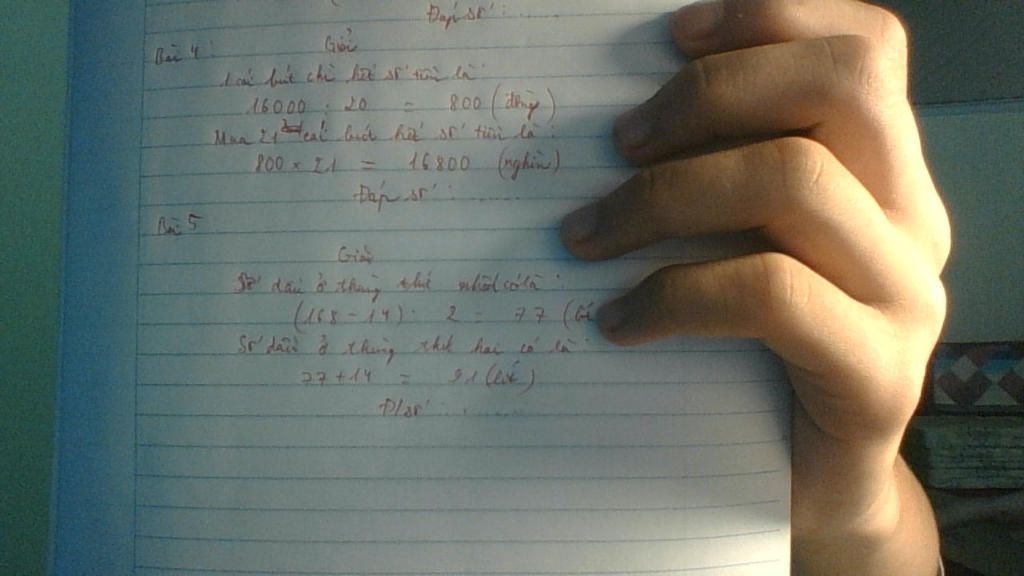 Đáp số : ......
Bài 4 : Giải
1 cái bút chì hết số tiền là :
16000 : 20 = 800 (đồng)
Mua 21 cái bút hết số tiền là :
800 x 21 = 16800 (nghìn)
Đáp số : .......
Bài 5
Giải
Số dầu ở thùng thứ nhất có là :
(168 - 14) : 2 = 77 (
Số dầu ở thùng thứ hai có là :
77 + 14 = 91 (lít)
Đ/số : .........